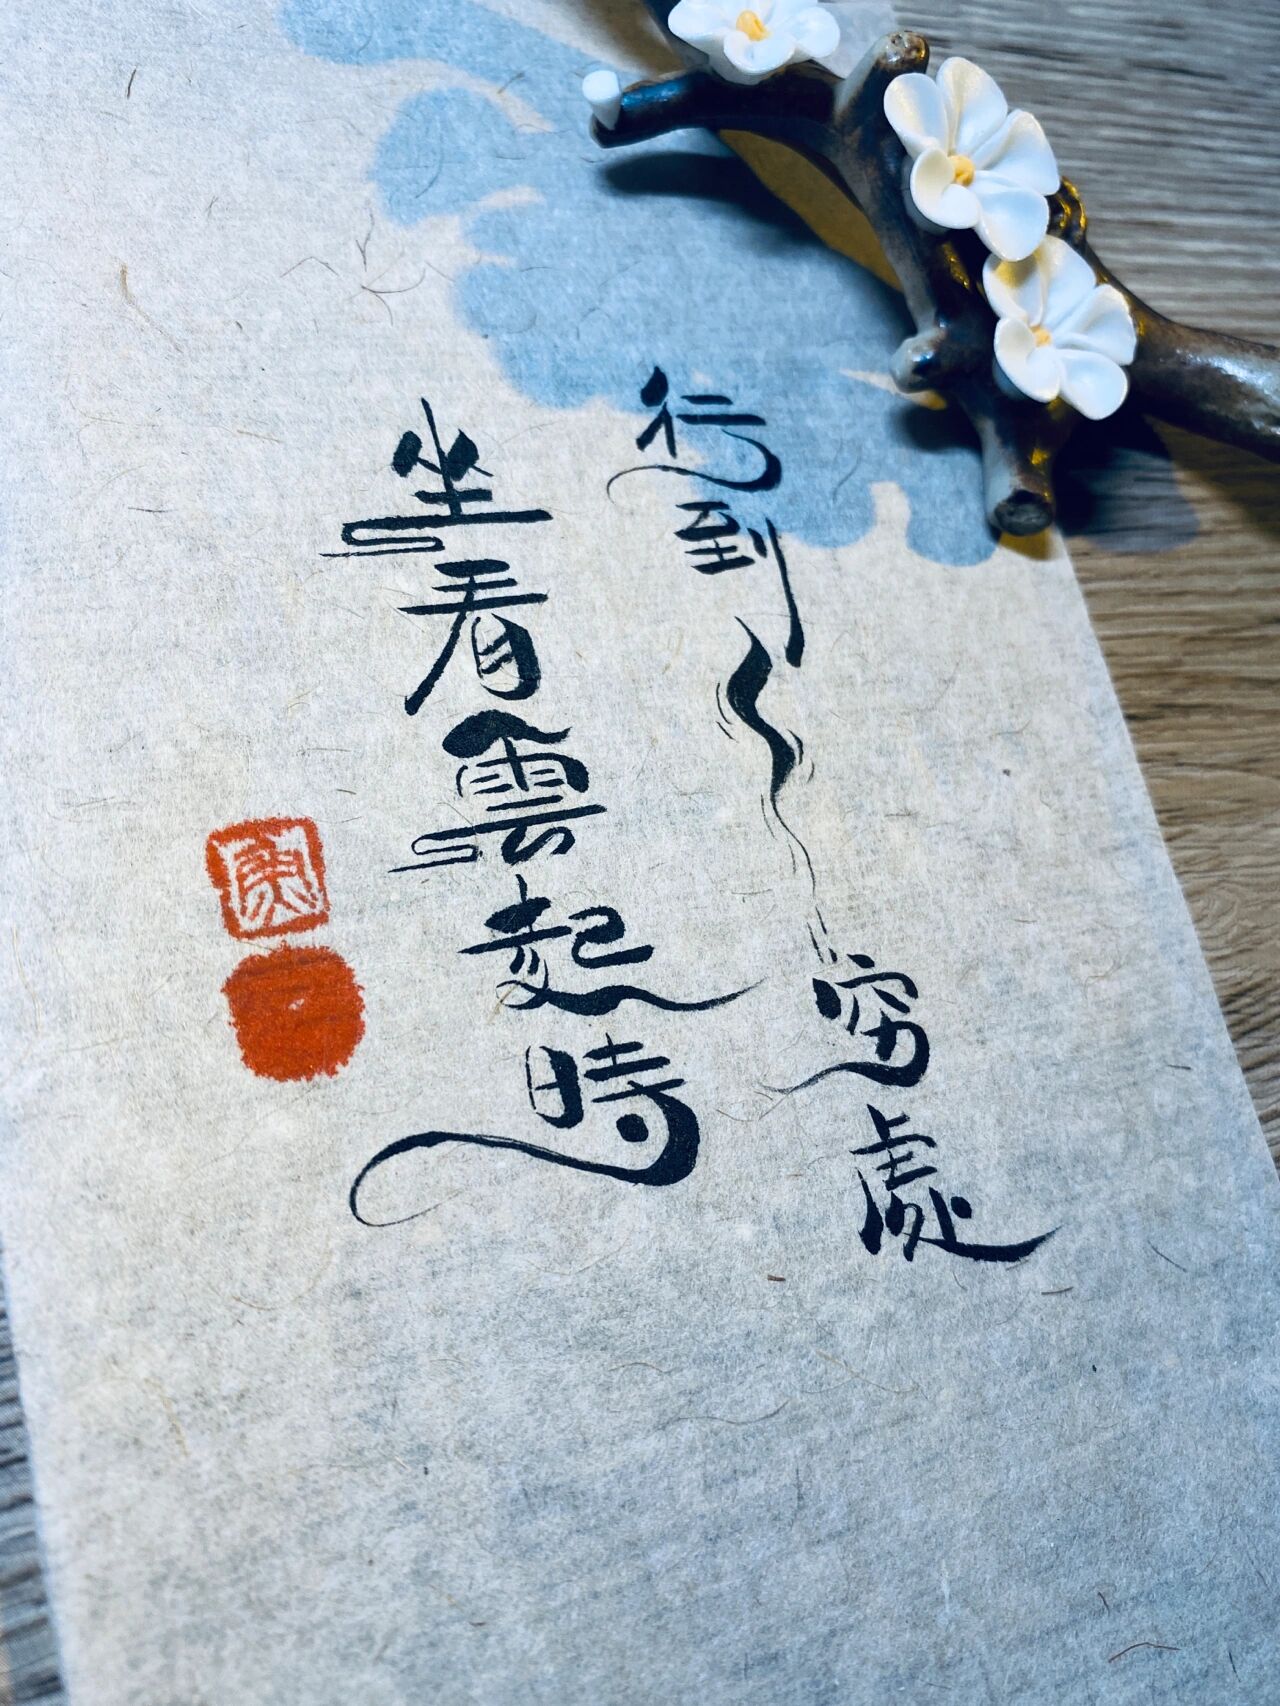 行到水穷處
坐看雲起時